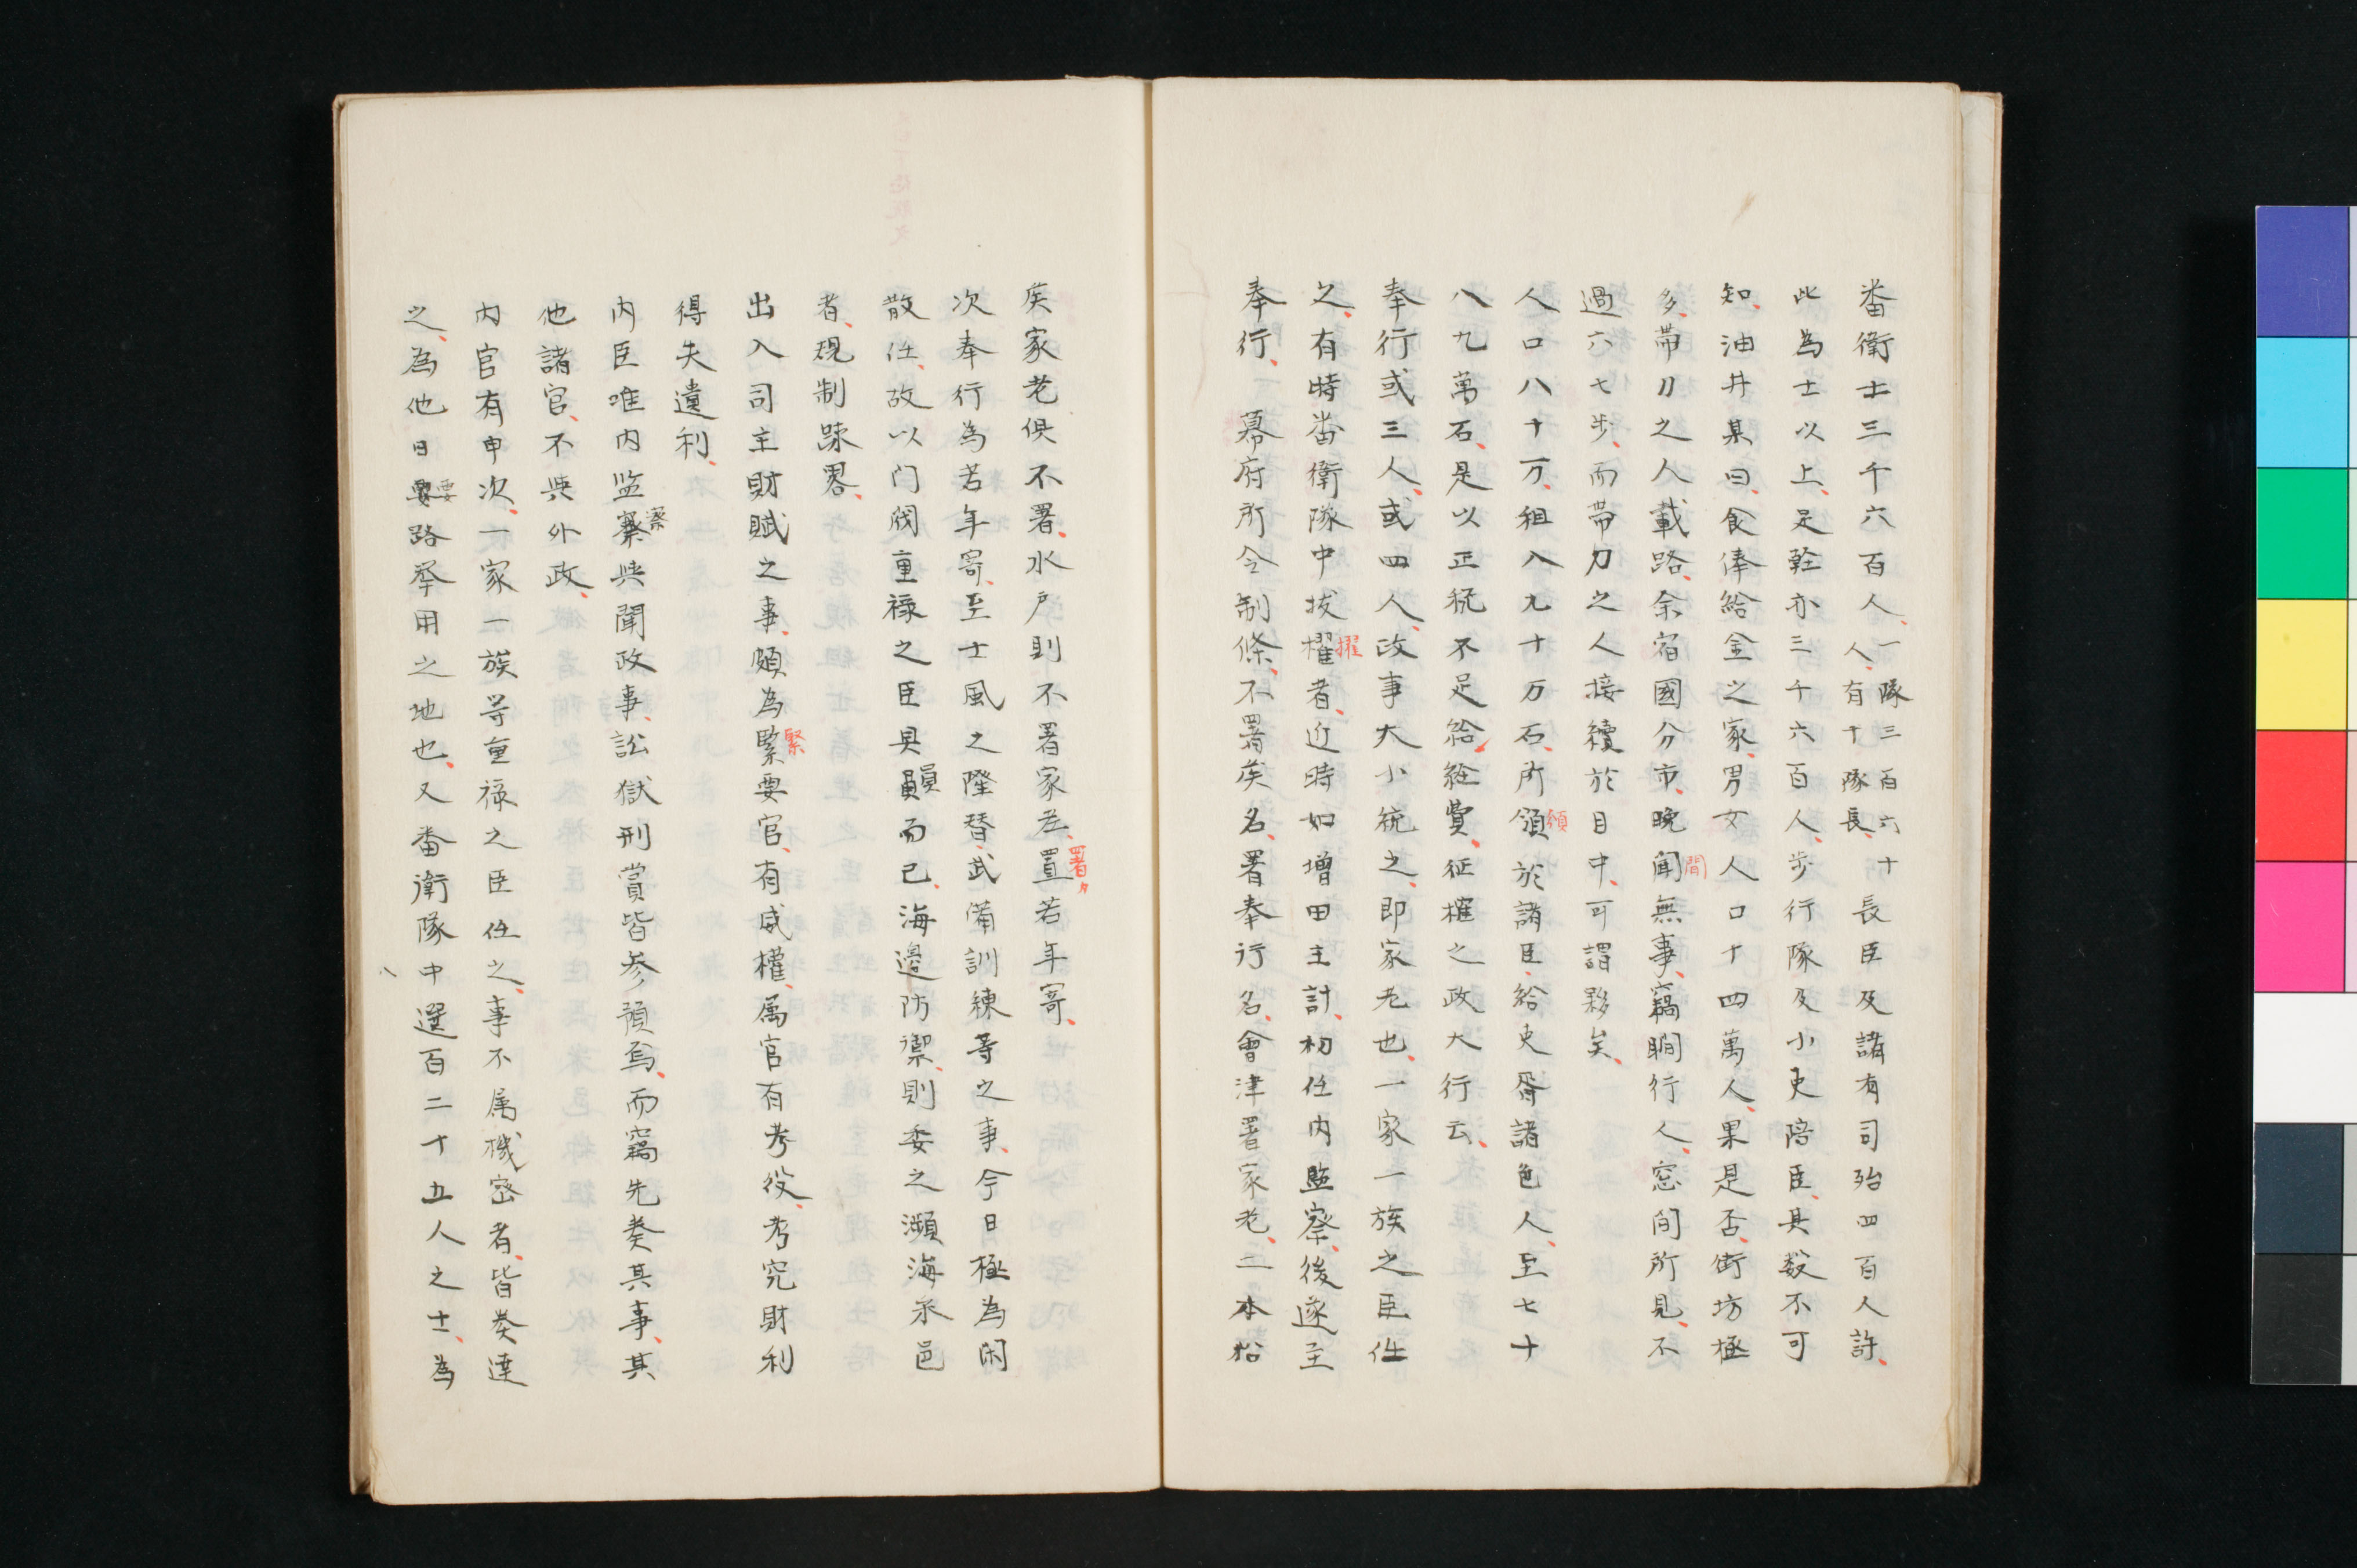 番衛士三千六百人、一隊三百六十人、有十隊長、長臣及諸有司殆四百人許、
此為士以上、足軽亦三千六百人、歩行隊及小吏陪臣、其数不可
知、油井某曰、食俸給金之家、男女人口十四萬人、果是否、街坊極
多、帯刀之人載路、余宿國分市、晩間無事、竊瞷行人、窓間所見、不
過六七歩、而帯刀之人接續於目中、可謂夥矣、
人口八十万、租入九十万石、所領於諸臣、給吏胥諸色人、至七十
八九萬石、是以正税不足給経費、征榷之政大行云、
奉行或三人、或四人、政事大小統之、即家老也、一家一族之臣任
之、有時番衛隊中抜擢者、近時如増田主計、初任内監察、後遂至
奉行、幕府所令制條、不署矦名、署奉行名、會津署家老、二本松
矦家老倶不署、水戸則不署家老、置若年寄、
次奉行為若年寄、至士風之隆替、武備訓練等之事、今日極為閑
散任、故以门閥重禄之臣具員而已、海邊防禦、則委之瀕海采邑
者、規制踈畧、
出入司主財賦之事、頗為緊要官、有威權、属官有考役、考究財利
得失遺利、
内臣唯内监察与聞政事、訟獄刑賞皆参預焉、而竊先奏其事、其
他諸官、不與外政、
内官有申次、一家一族等重禄之臣任之、事不属機密者、皆奏達
之、為他日要路挙用之地也、又番衛隊中選百二十五人之士、為